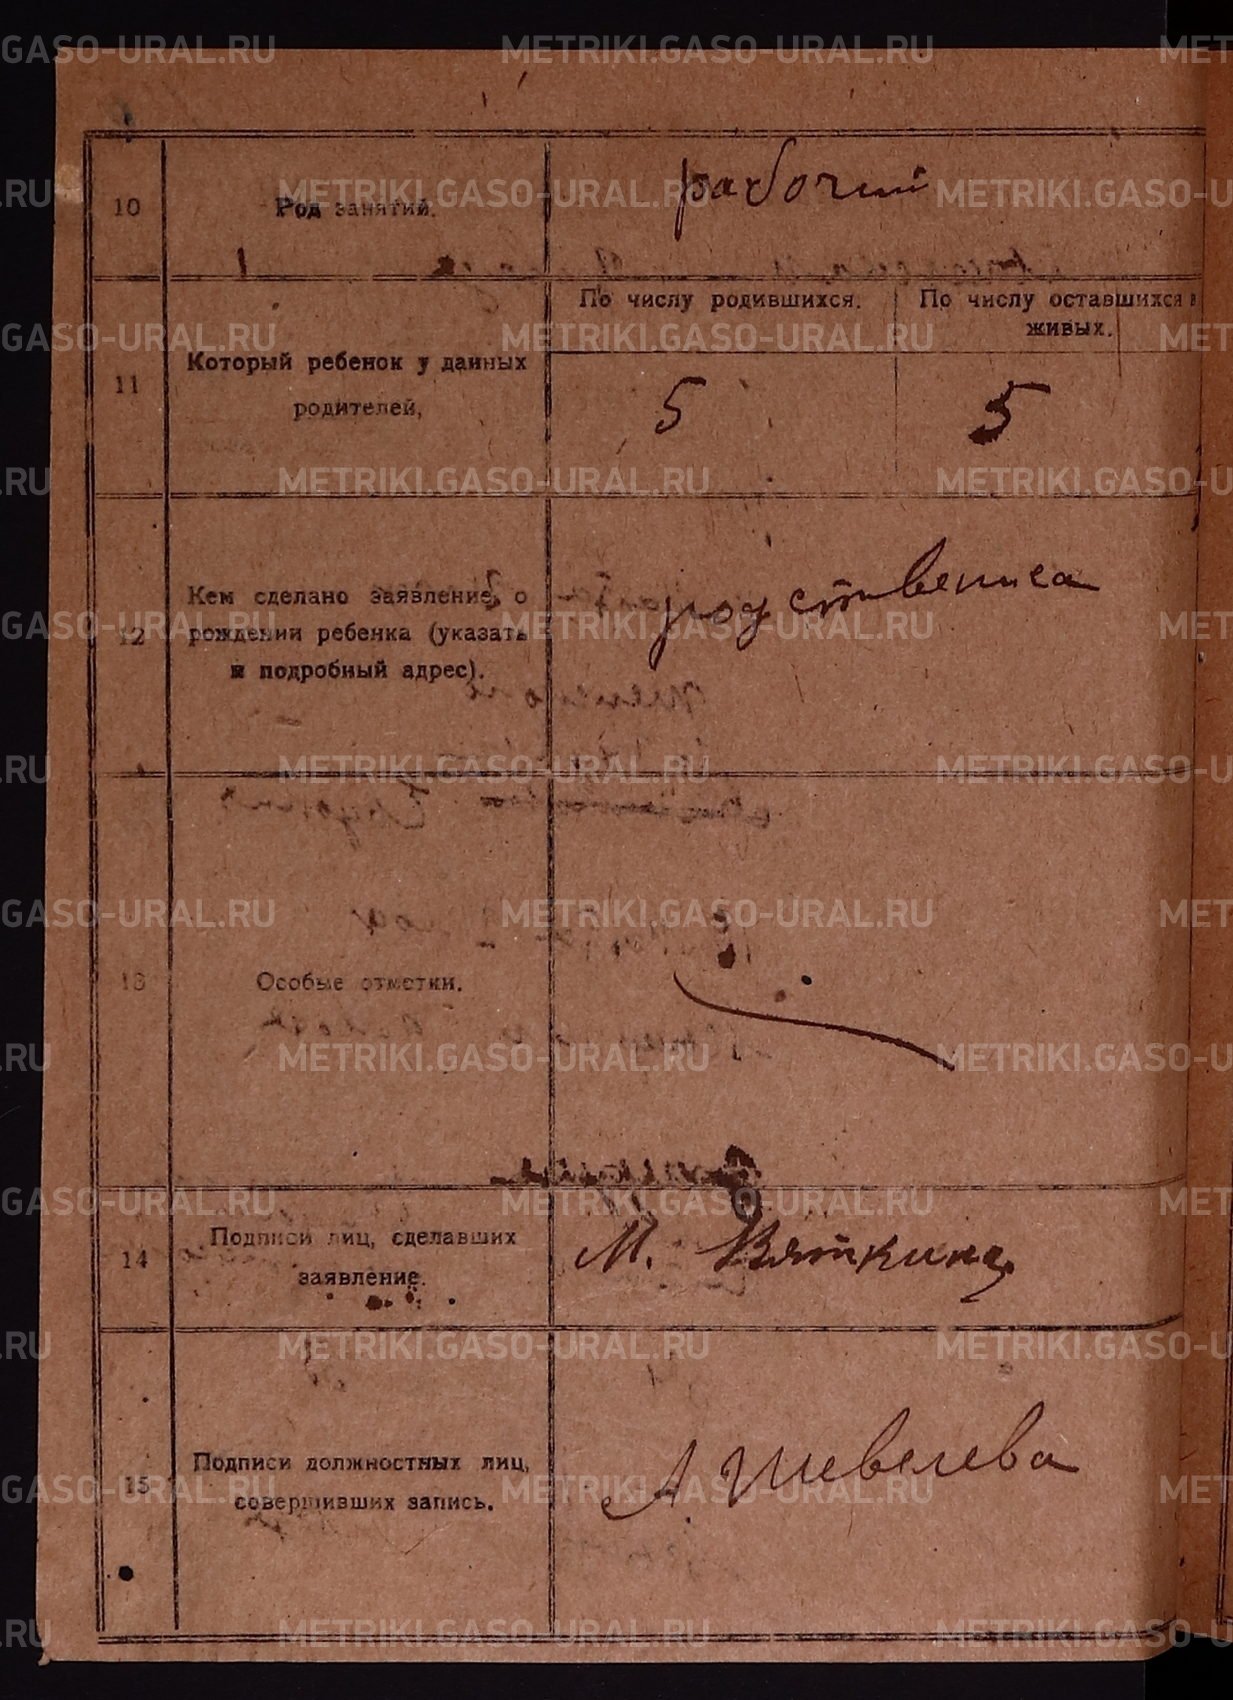 10 Род занятий. рабочий
11 Который ребенок у данных родителей,
По числу родившихся.
По числу оставшихся в живых.
5
5
12 Кем сделано заявление о
рождении ребенка (указать
и подробный адрес).
родственица
13 Особые отметки.
14 Подписи лиц, сделавших
заявление.
М. Вяткина
15 Подписи должностных лиц,
совершивших запись.
А. Шевелева
METRIKI.GASO-URAL.RU